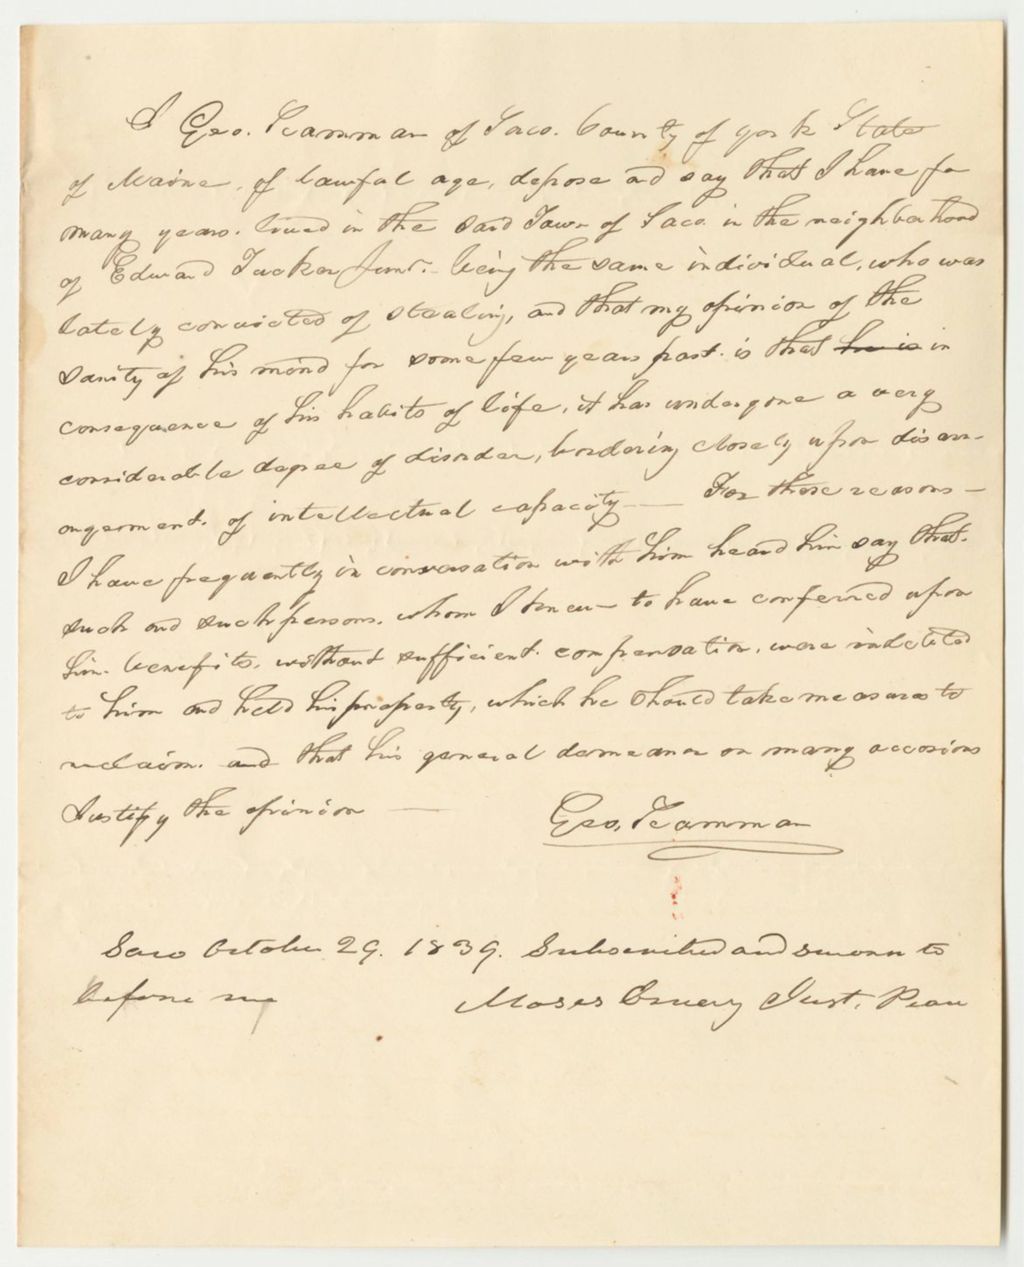 I Geo. Scamman of Saco. County of York State
of Maine, of lawful age, depose and say that I have for
many years. lived in the said Town of Saco. in the neighborhood
of Edward Tucker Junr. - being the same individual, who was
lately convicted of stealing, and that my opinion of the
sanity of his mind for some few years past. is that he is in
consequence of his habits of life, it has undergone a very
considerable degree of disorder, bordering closely upon disarr-
angement. of intellectual capacity — For these reasons -
I have frequently in conversation with him heard him say that.
such and such persons. whom I knew - to have conferred upon
him. benefits. without sufficient. compensation. were indebted
to him and held his property, which he should take measures to
reclaim. and that his general demeanor on many occasions
Justify the opinion —
Geo. Scamman
Saco October 29. 1839. Subscribed and sworn to
before me Moses Emery Just. Peace